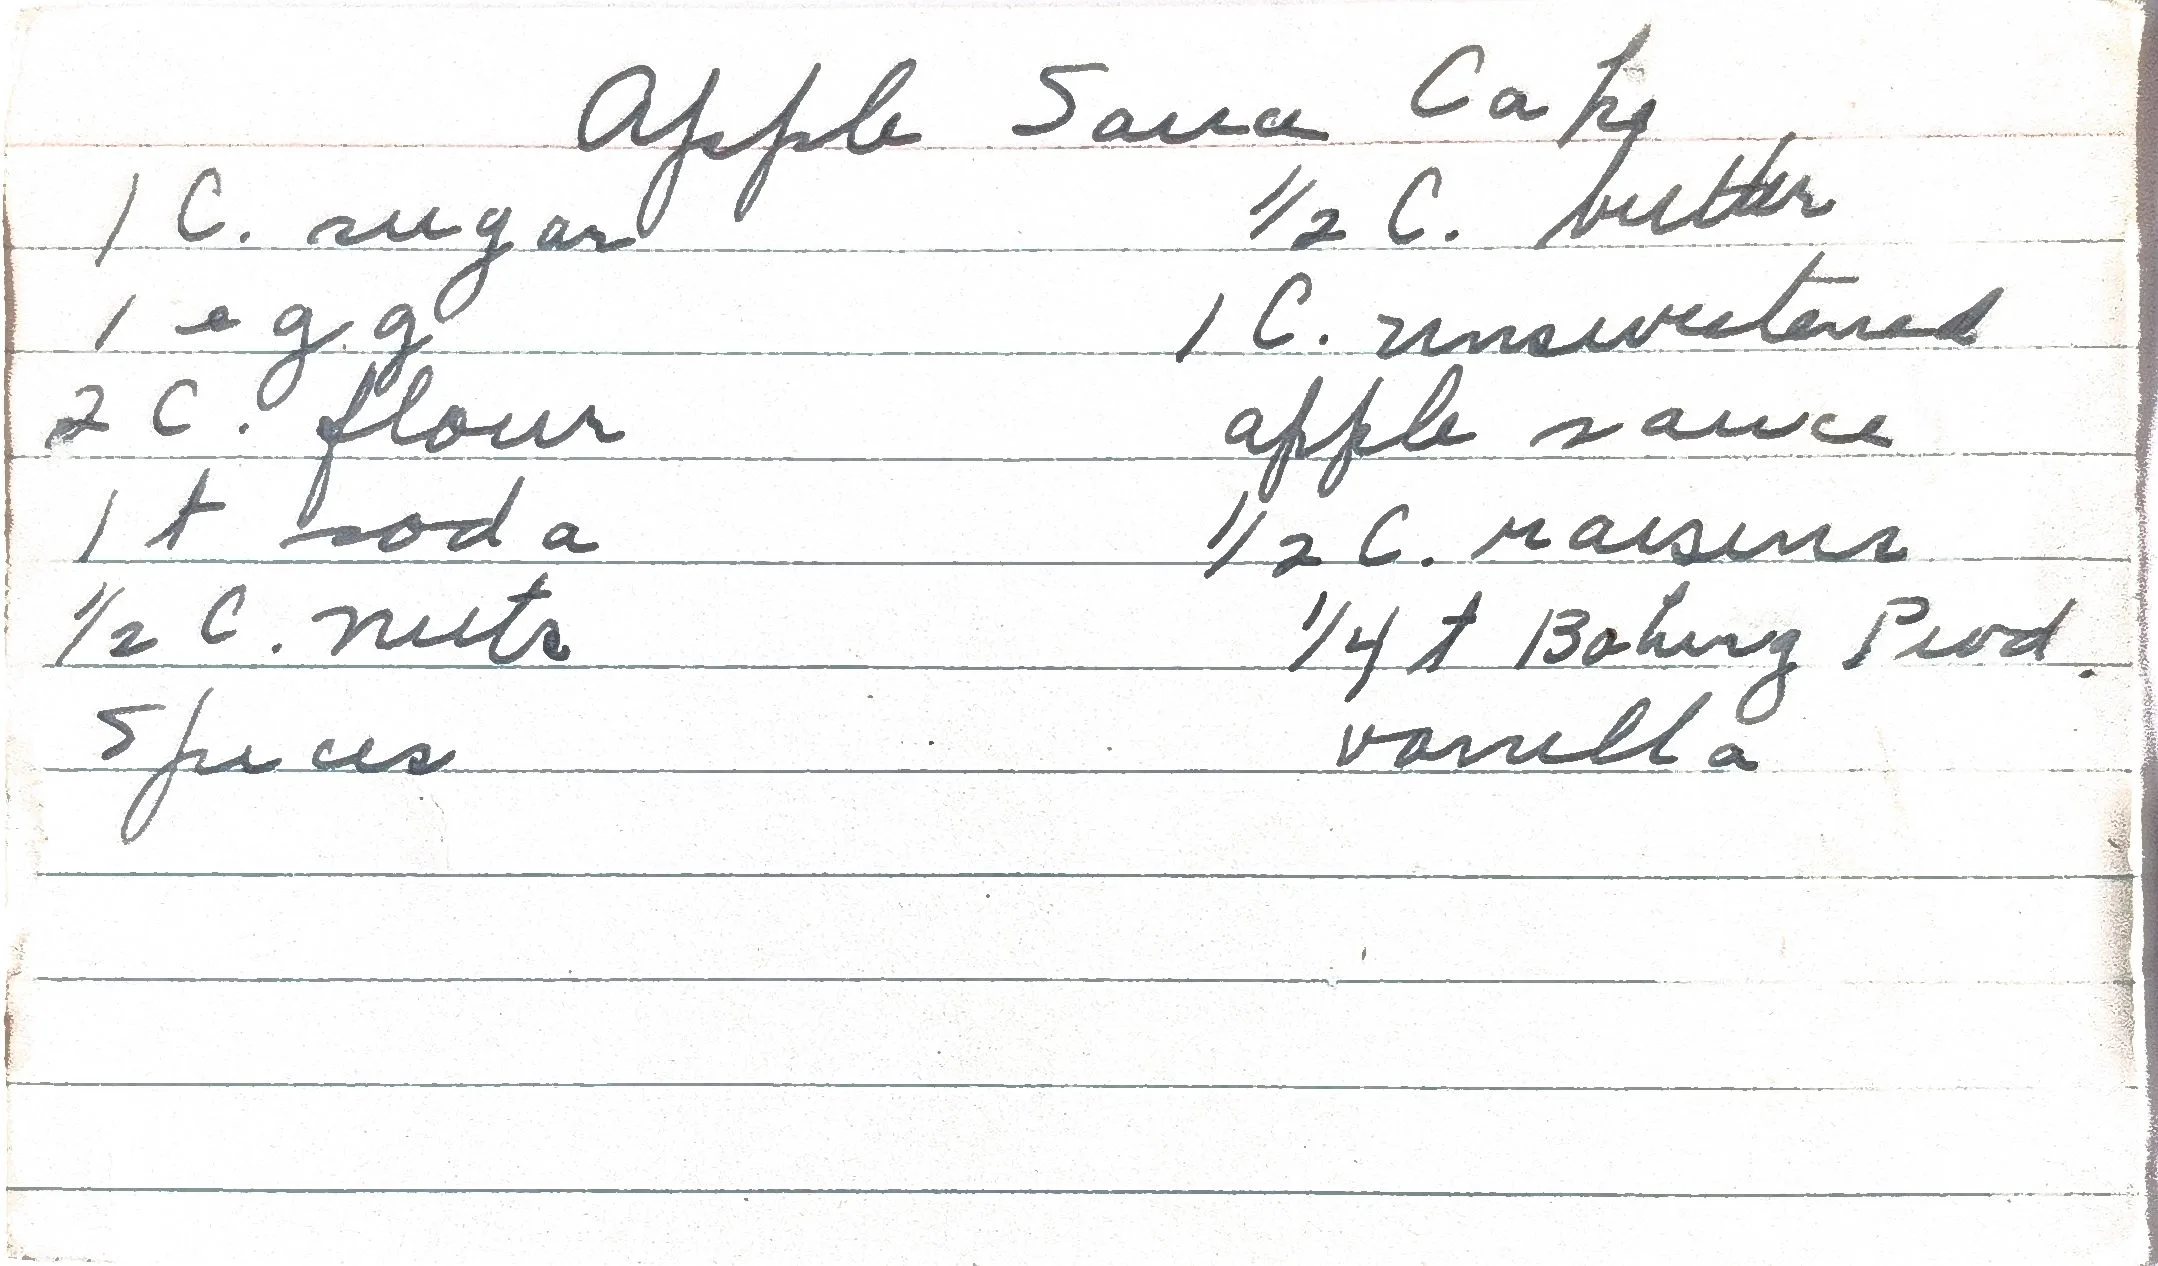 Apple Sauce Cake
1 C. sugar 1/2 C. butter
1 egg 1 C. unsweetened
2 C. flour apple sauce
1 t soda 1/2 C. raisins
1/2 C. nuts 1/4 t Baking Pwd.
Spices vanilla